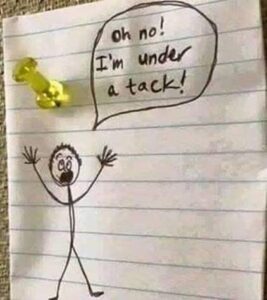 Oh no!
I'm under
a tack!